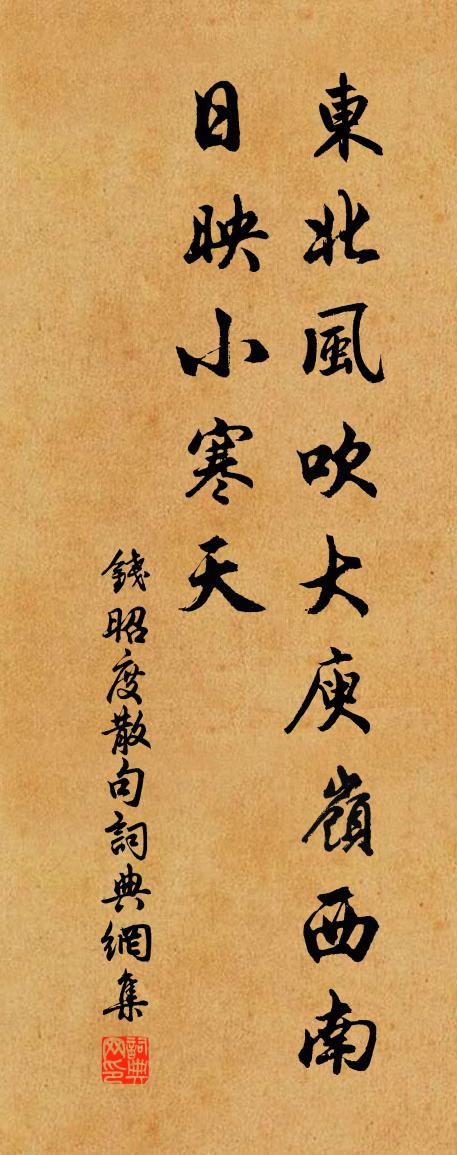 東北風吹大庾嶺西南
日映小寒天
錢昭度散句詞典網集
詞典网印